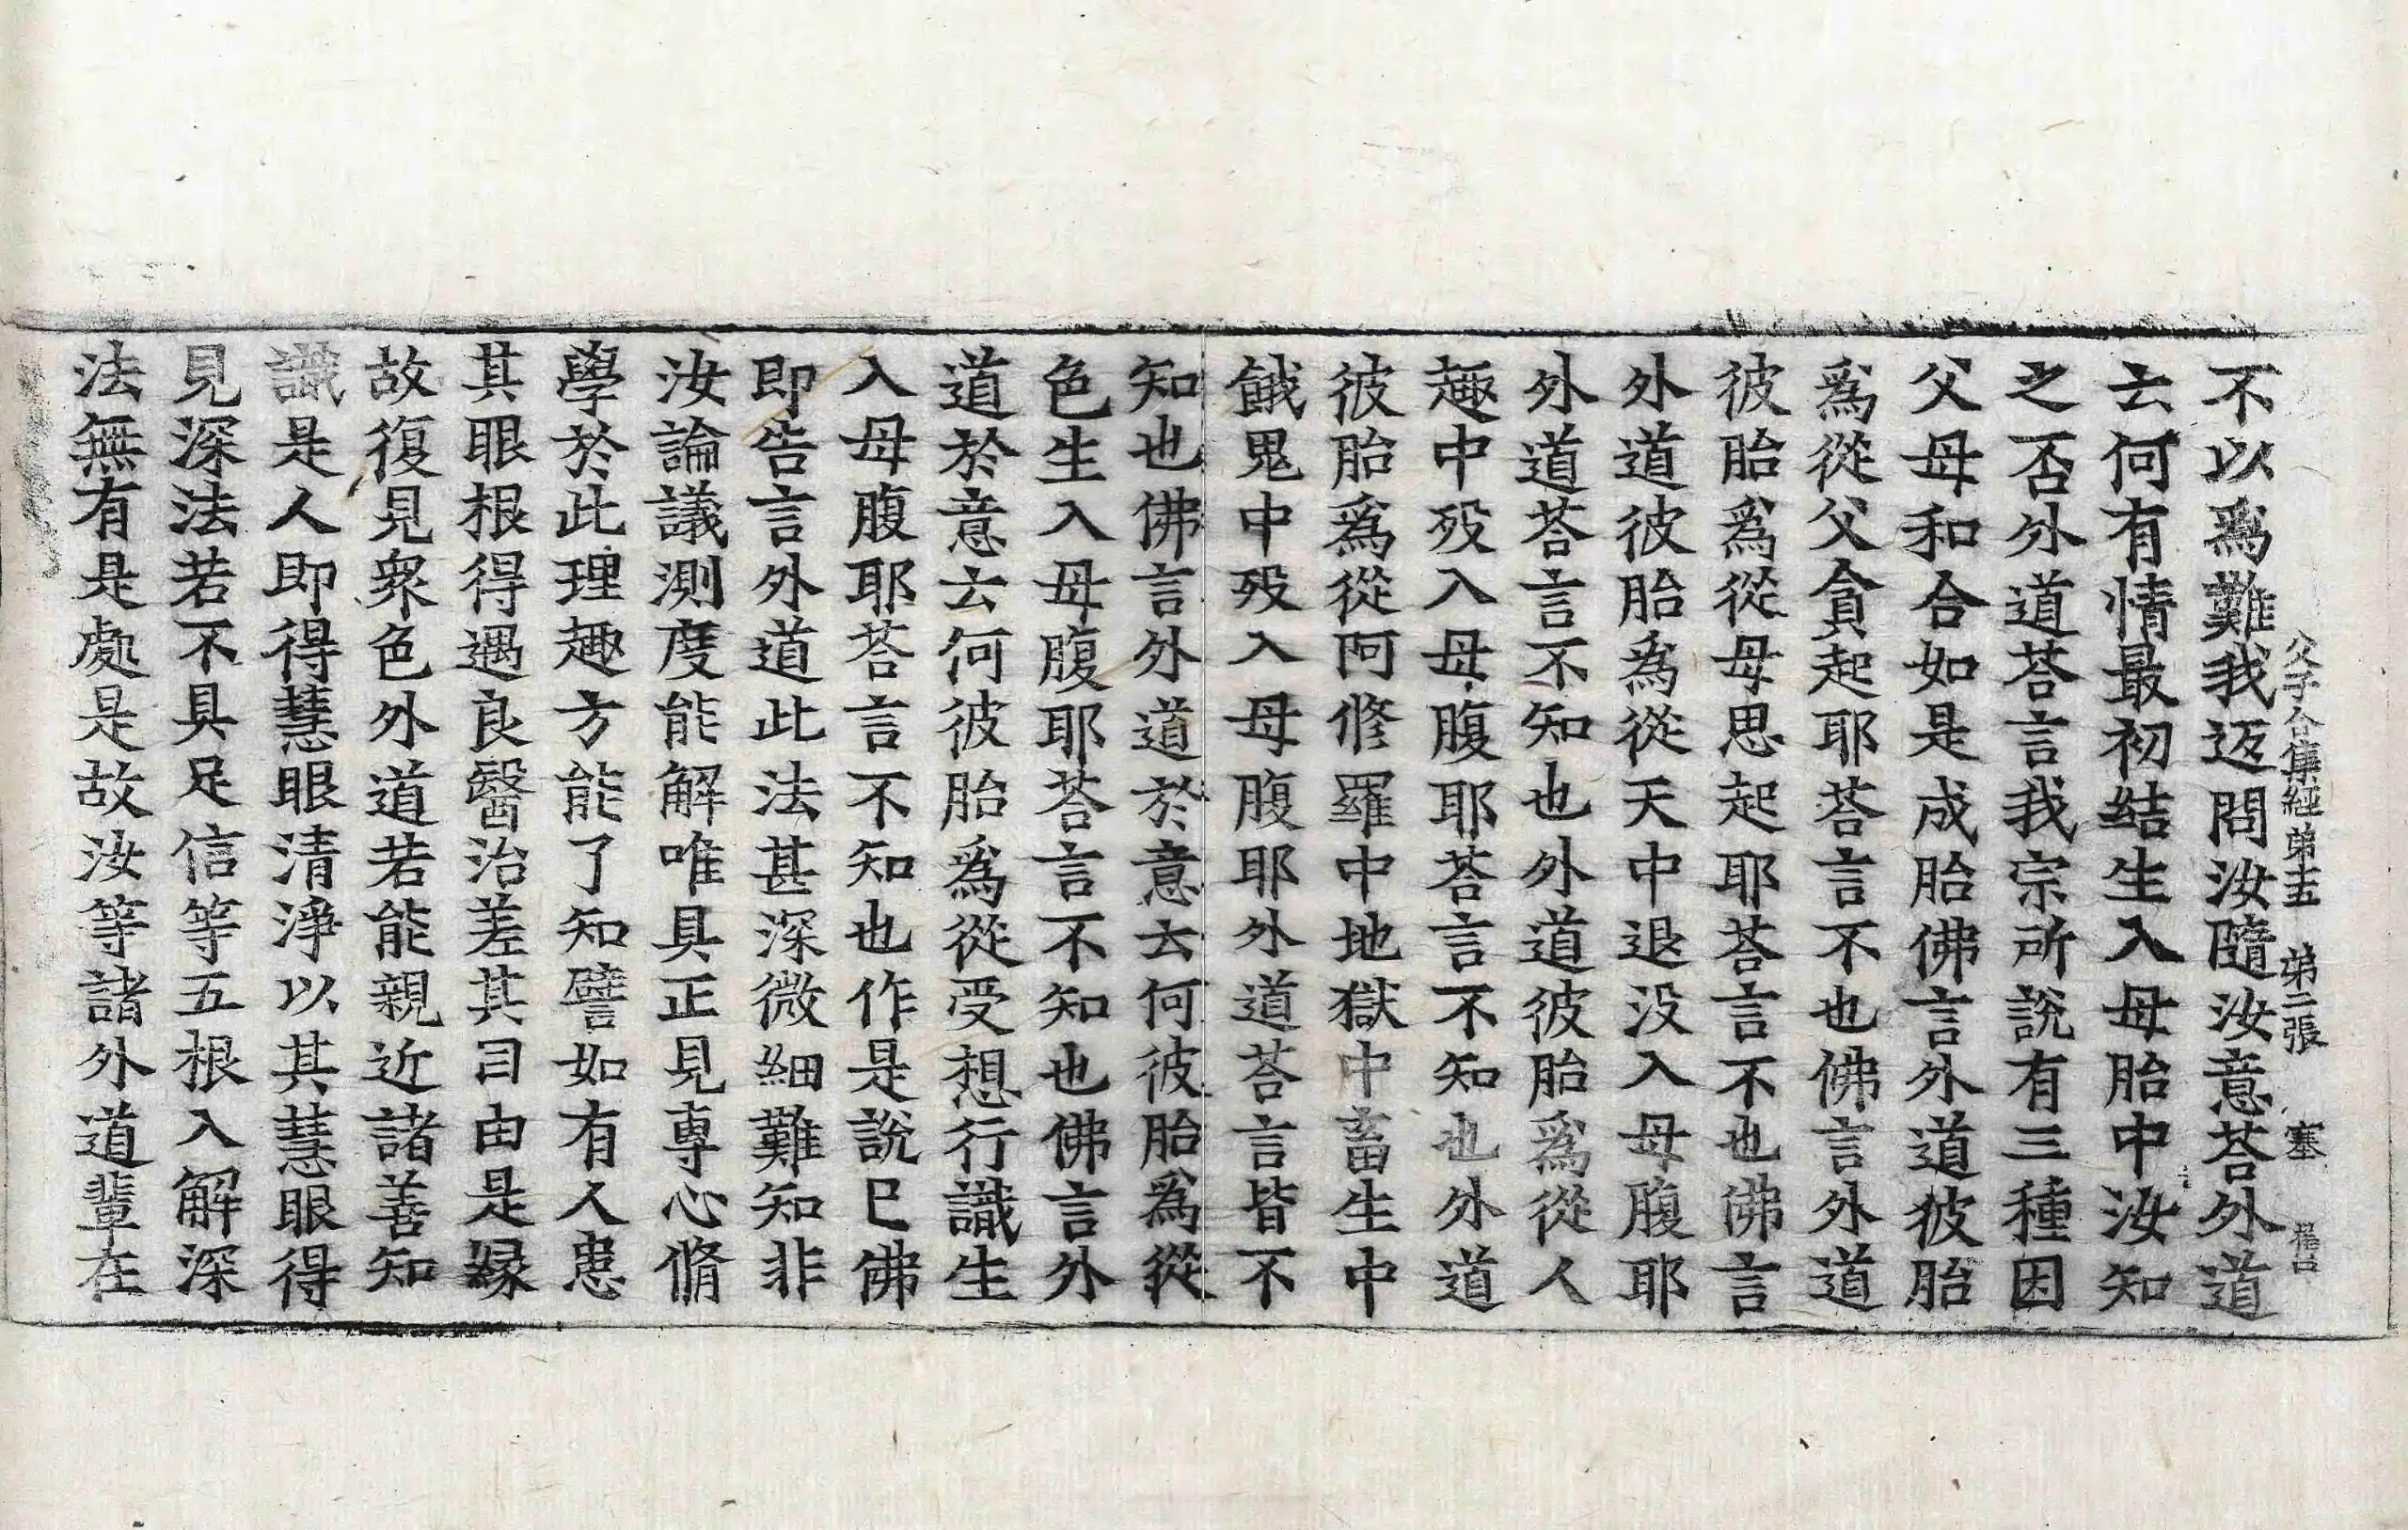 父子合集經第十五　第二張　塞
不以爲難我返問汝隨汝意荅外道
云何有情最初結生入母胎中汝知
之否外道荅言我宗所說有三種因
父母和合如是成胎佛言外道彼胎
爲從父貪起耶荅言不也佛言外道
彼胎爲從母思起耶荅言不也佛言
外道彼胎爲從天中退没入母腹耶
外道荅言不知也外道彼胎爲從人
趣中歿入母腹耶荅言不知也外道
彼胎爲從阿修羅中地獄中畜生中
餓鬼中歿入母腹耶外道荅言皆不
知也佛言外道於意云何彼胎爲從
色生入母腹耶荅言不知也佛言外
道於意云何彼胎爲從受想行識生
入母腹耶荅言不知也作是說已佛
即告言外道此法甚深微細難知非
汝論議測度能解唯具正見專心脩
學於此理趣方能了知譬如有人患
其眼根得遇良醫治差其目由是縁
故復見衆色外道若能親近諸善知
識是人即得慧眼清淨以其慧眼得
見深法若不具足信等五根入解深
法無有是處是故汝等諸外道輩在